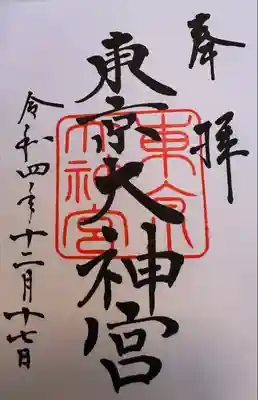 奉拝
東京大神宮
東京大神宮
令和四年十二月十七日